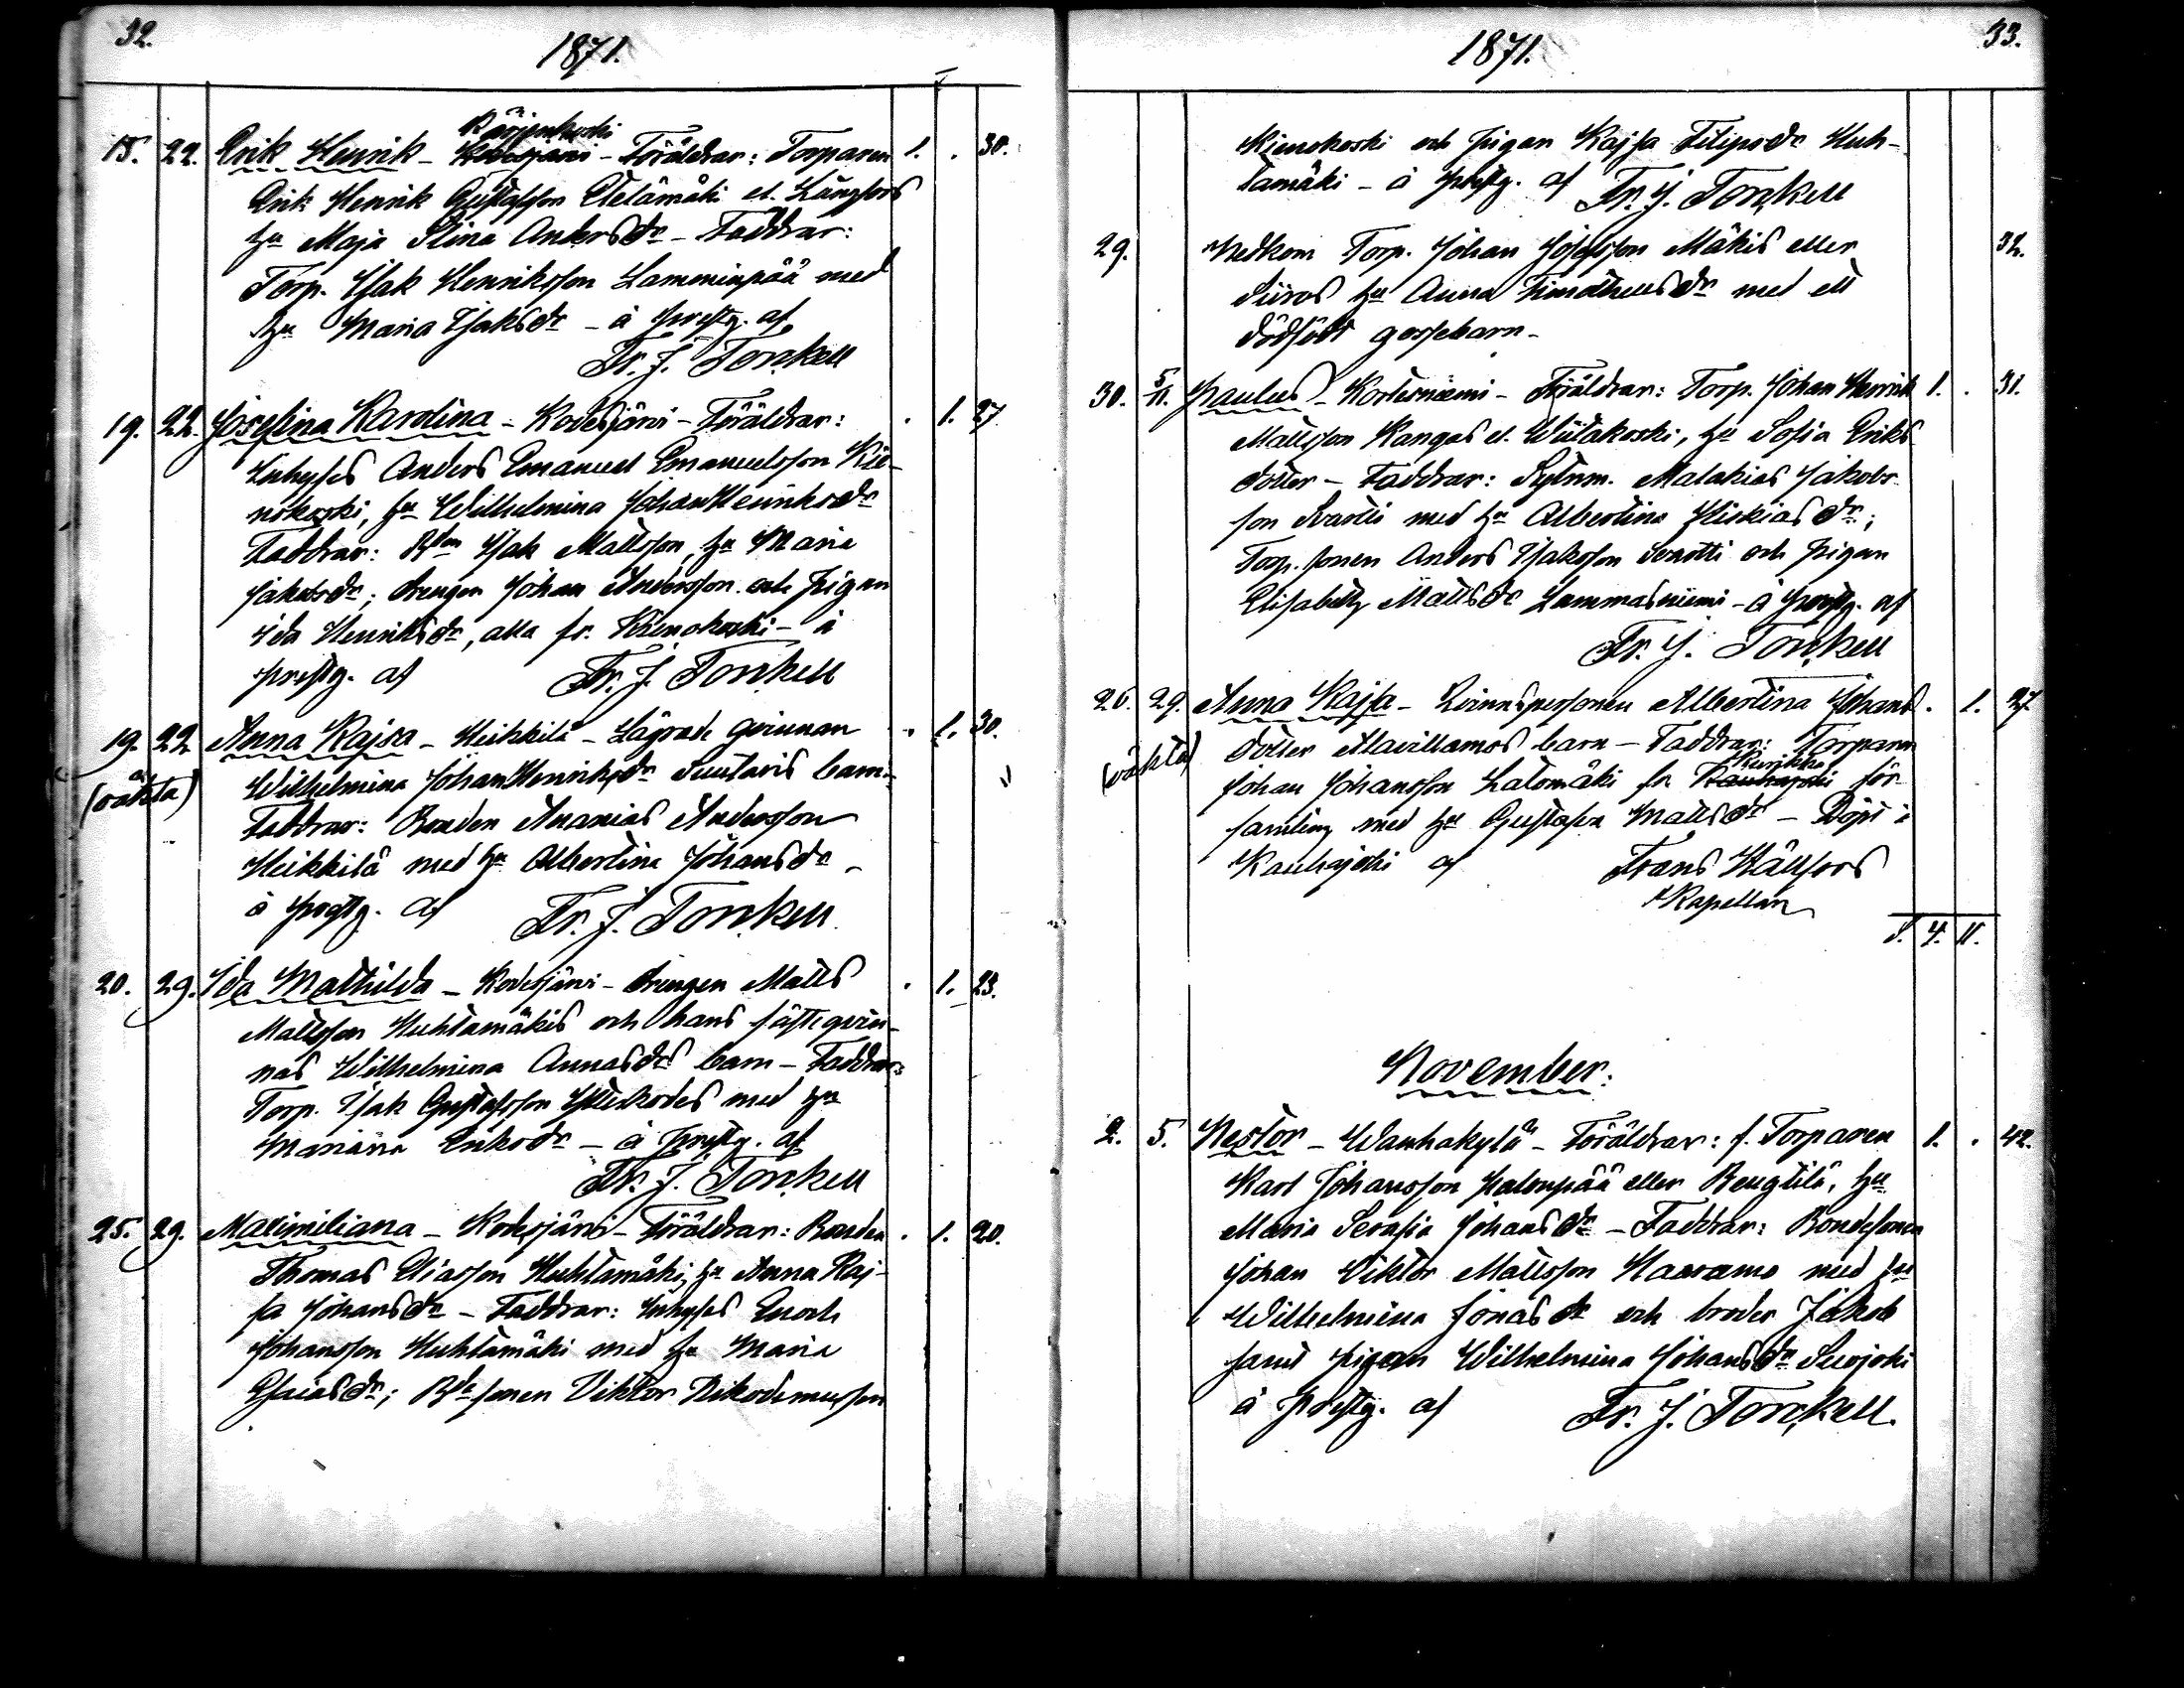 32.
1871.
Kärjenkoski
15. 22. Erik Henrik - Kodesjärvi - Föräldrar: Torparen 1. . 30.
Erik Henrik Gustafsson Etelämäki el. Långfors
hu Maja Stina Andersdr - Faddrar:
Torp. Isak Henriksson Lamminpää med
hu Maria Isaksdr - å prestg. af
Fr. J. Tonkell
19. 22. Josefina Karolina - Kodesjärvi - Föräldrar: . 1. 27.
Inhyses Anders Emanuel Emanuelsson Kie-
nokoski, hu Wilhelmina JohanHenriksdr
Faddrar: Isak Mattsson, hu Maria
Jakobsdr; drengen Johan Andersson och pigan
Ida Henriksdr, alla fr. Kienokoski - å
prestg. af Fr. J. Tonkell
19. 22. Anna Kajsa - Heikkilä - Lägrade qvinnan . 1. 30.
(oäkta) Wilhelmina JohanHenriksdr Suutaris barn -
Faddrar: Bonden Ananias Andersson
Heikkilä med hu Albertina Johansdr -
å prestg. af Fr. J. Tonkell.
20. 29. Ida Mathilda - Kodesjärvi - drengen Matts . 1. 23.
Mattsson Huhtamäkis och hans fästeqvin-
nas Wilhelmina Annasdrs barn - Faddrar:
Torp. Isak Gustafsson med hu
Mariana Eriksdr - å prestg. af
Fr. J. Tonkell
25. 29. Maximiliana - Kodesjärvi - Föräldrar: Bonden . 1. 20.
Thomas Eliasson Huhtamäki, hu Anna Kaj-
sa Johansdr - Faddrar: Inhyses Enoch
Johansson Huhtamäki med hu Maria
Esaiasdr; Bdesonen Viktor Nikodemusson
1871.
33.
Kienokoski och pigan Kajsa Filipsdr Huh-
tamäki - å prestg. af Fr. J. Tonkell
29. Nedkom Torp. Johan Josefsson Mäkis eller 32.
Siiros hu Anna Timotheusdr med ett
dödfödt gossebarn -
30. 5/11. Paulus - Korteniemi - Föräldrar: Torp. Johan Henrik 1. . 31.
Mattsson Kangas el. Wiitakoski, hu Sofia Eriks-
dotter - Faddrar: Sytnm. Malakias Jakobs-
son Svartti med hu Albertina Hiskiasdr;
Torp. sonen Anders Isaksson Svartti och pigan
Elisabeth Mattsdr Lammasniemi - å prestg. af
Fr. J. Tonkell
26. 29. Anna Kajsa - Qvinnspersonen Albertina Johans- . 1. 27.
(oäkta) dotter Alavillamos barn - Faddrar: Torparen
Kurikka
Johan Johansson Latomäki fr. Kauhajoki för-
samling med hu Gustafva Mattsdr - Döpt i
Kauhajoki af Frans Hällfors
Kapellan
4. 11.
November:
2. 5. Nestor - Wanhakylä - Föräldrar: f. Torparen 1. . 42.
Karl Johansson Halenpää eller Bengtilä, hu
Maria Serafia Johansdr - Faddrar: Bondesonen
Johan Viktor Mattsson Haaramo med hu
Wilhelmina Jonasdr och broder Jakob
samt pigan Wilhelmina Johansdr Suojoki
å prestg. af Fr. J. Tonkell.